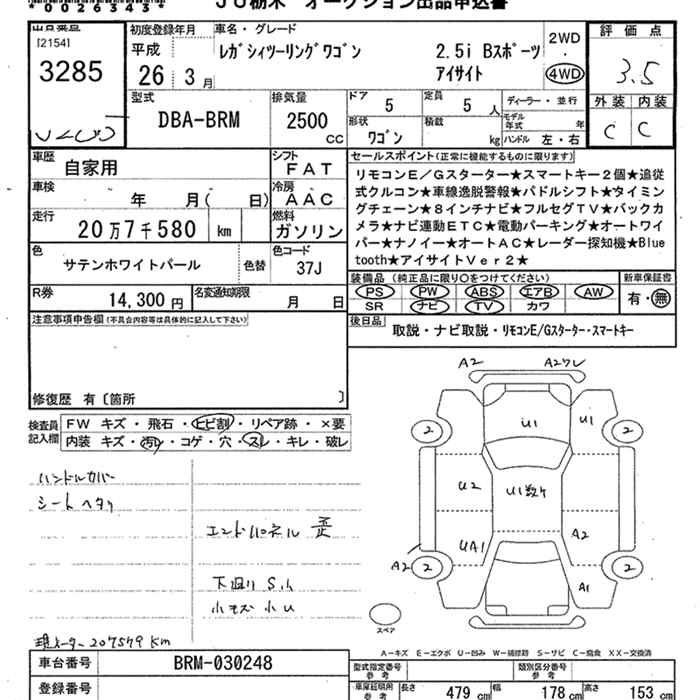 *0026343*
JU栃木 オークション出品申込書
出品番号
[2154]
3285
初度登録年月
平成
26 3月
車名・グレード
レガシィツーリングワゴン 2.5i Bスポーツ
アイサイト
2WD
・
4WD
評価点
3.5
外装 内装
C C
型式
DBA-BRM
排気量
2500 cc
ドア 5
定員 5 人
形状 ワゴン
積載 kg
ディーラー・並行
モデル年式 年
ハンドル 左・右
車歴 自家用
シフト FAT
車検 年 月( 日)
冷房 AAC
走行 20万7千580 km
燃料 ガソリン
色 サテンホワイトパール
色替
色コード 37J
R券 14,300円
名変通知期限 月 日
セールスポイント(正常に機能するものに限ります)
リモコンE/Gスターター★スマートキー2個★追従
式クルコン★車線逸脱警報★パドルシフト★タイミン
グチェーン★8インチナビ★フルセグTV★バックカ
メラ★ナビ連動ETC★電動パーキング★オートワイ
パー★ナノイー★オートAC★レーダー探知機★Blue
tooth★アイサイトVer2★
装備品 (純正品に限り○をつけてください)
PS PW ABS エアB AW
SR ナビ TV カワ
新車保証書
有・無
後日品
取説・ナビ取説・リモコンE/Gスターター・スマートキー
注意事項申告欄(不具合内容等は具体的に記入して下さい)
修復歴 有〔箇所 〕
検査員
記入欄
FW キズ・飛石・ヒビ割・リペア跡・×要
内装 キズ・汚レ・コゲ・穴・スレ・キレ・破レ
ハンドルカバー
シートヘタリ
エンドパネル 歪
下廻り Sん
小キズ 小U
現メーター207579Km
A2 A2ワレ
2 U1 U1 2
U2 U1数ケ
UA1 A2
A2 2 2
A1
スペア
A-キズ E-エクボ U-凹み W-補修跡 S-サビ C-腐食 XX-交換済
車台番号 BRM-030248
登録番号
型式指定番号
参考
類別区分番号
参考
車庫証明用
参考
長さ 479 cm 幅 178 cm 高さ 153 cm